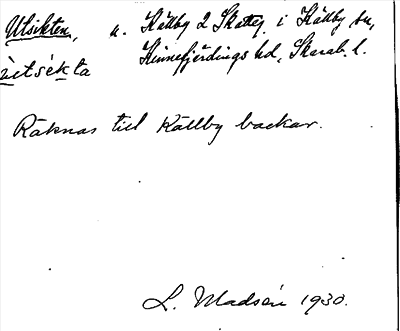 Utsikten, u. Källby 2 Skatteg. i Källby sn,
Kinnefjärdings hd, Skarab. l.
ù̀tsék̀ta
Räknas till Källby backar.
L. Madsén 1930.